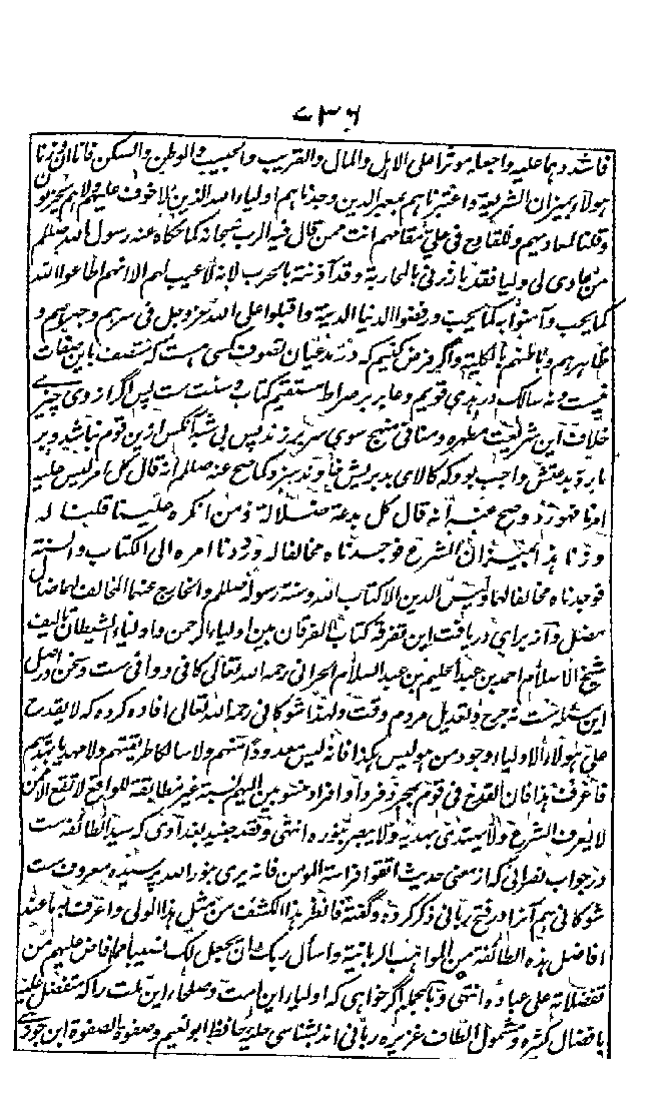 ۷۳۶
فاشدد بها علیه واجعله موثرا علی الاهل والمال والقریب والحبیب والوطن والسکن فانا ان وزنا
هولاء بمیزان الشریعة واعتبرناهم بمعیار الدین وجدناهم اولیاء الله الذین لا خوف علیهم ولا هم یحزنون
وقلنا لمعادیهم وللقادح فی علی مقامهم انت ممن قال فیه الرب سبحانه کما حکاه عنه رسول الله صللم
من عادی لی ولیا فقد بارزنی بالمحاربة وقد آذنته بالحرب لانه لا عیب لهم الا انهم اطاعوا الله
کما یحب وآمنوا به کما یحب ورفضوا الدنیا الدنیة واقبلوا علی الله عز وجل فی سرهم وجهرهم و
ظاهرهم وباطنهم بالکلیة واگر فرض کنیم که در مدعیان تصوف کسی هست که متصف باین صفات
نیست و نه سالک در هدی قویم و عابر بر صراط مستقیم کتاب و سنت ست پس اگر از وی چیزی
خلاف این شریعت مطهره و منافی منهج سوی سر برزند پس بی شبه آنکس ازین قوم نباشد و بر
ما رد بدعتش واجب بود که کالای بد بریش خاوند بد و کما صح عنه صللم انه قال کل امر لیس علیه
امرنا فهو رد وصح عنه انه قال کل بدعة ضلالة ومن انکره علینا قلنا له
وزنا هذا بمیزان الشرع فوجدناه مخالفا له ورددنا امره الی الکتاب والسنة
فوجدناه مخالفا لهما ولیس الدین الا کتاب الله وسنة رسوله صللم والخارج عنهما المخالف لهما ضال
مضل و از برای دریافت این تفرقه کتاب الفرقان بین اولیاء الرحمن واولیاء الشیطان تالیف
شیخ الاسلام احمد بن عبد الحلیم بن عبد السلام الحرانی رحمه الله تعالی کافی و وافی ست و سخن در اصل
این مسئله ست نه جرح و تعدیل مردم وقت و لهذا شوکانی رحمه الله تعالی افاده کرده که لا یقدح
علی هولاء الاولیاء وجود من هو لیس هکذا فانه لیس معدودا منهم ولا سالکا طریقتهم ولا مهدیا بهدیهم
فاعرف هذا فان القدح فی قوم بمجرد فرد او افراد منسوبین الیهم نسبة غیر مطابقة للواقع لا تقع الا ممن
لا یعرف الشرع ولا یهتدی بهدیه ولا یبصر بنوره انتهی و قصه جنید بغدادی که سید الطائفه ست
در جواب نصرانی که از معنی حدیث اتقوا فراسة المومن فانه یری بنور الله پرسیده معروف ست
شوکانی هم آنرا در فتح ربانی ذکر کرده و گفته فانظر هذا الکشف من مثل هذا الولی واعرف به ما عند
افاضل هذه الطائفة من المواهب الربانیة واسأل ربک ان یجعل لک نصیبا مما فاض علیهم من
تفضلاته علی عباده انتهی و بالجمله اگر خواهی که اولیاء این امت و صلحاء این ملت را که متفضل علیه
بافضال کثیره و مشمول الطاف عزیزه ربانی اند بشناسی حلیة حافظ ابو نعیم و صفوة الصفوة ابن جوزی